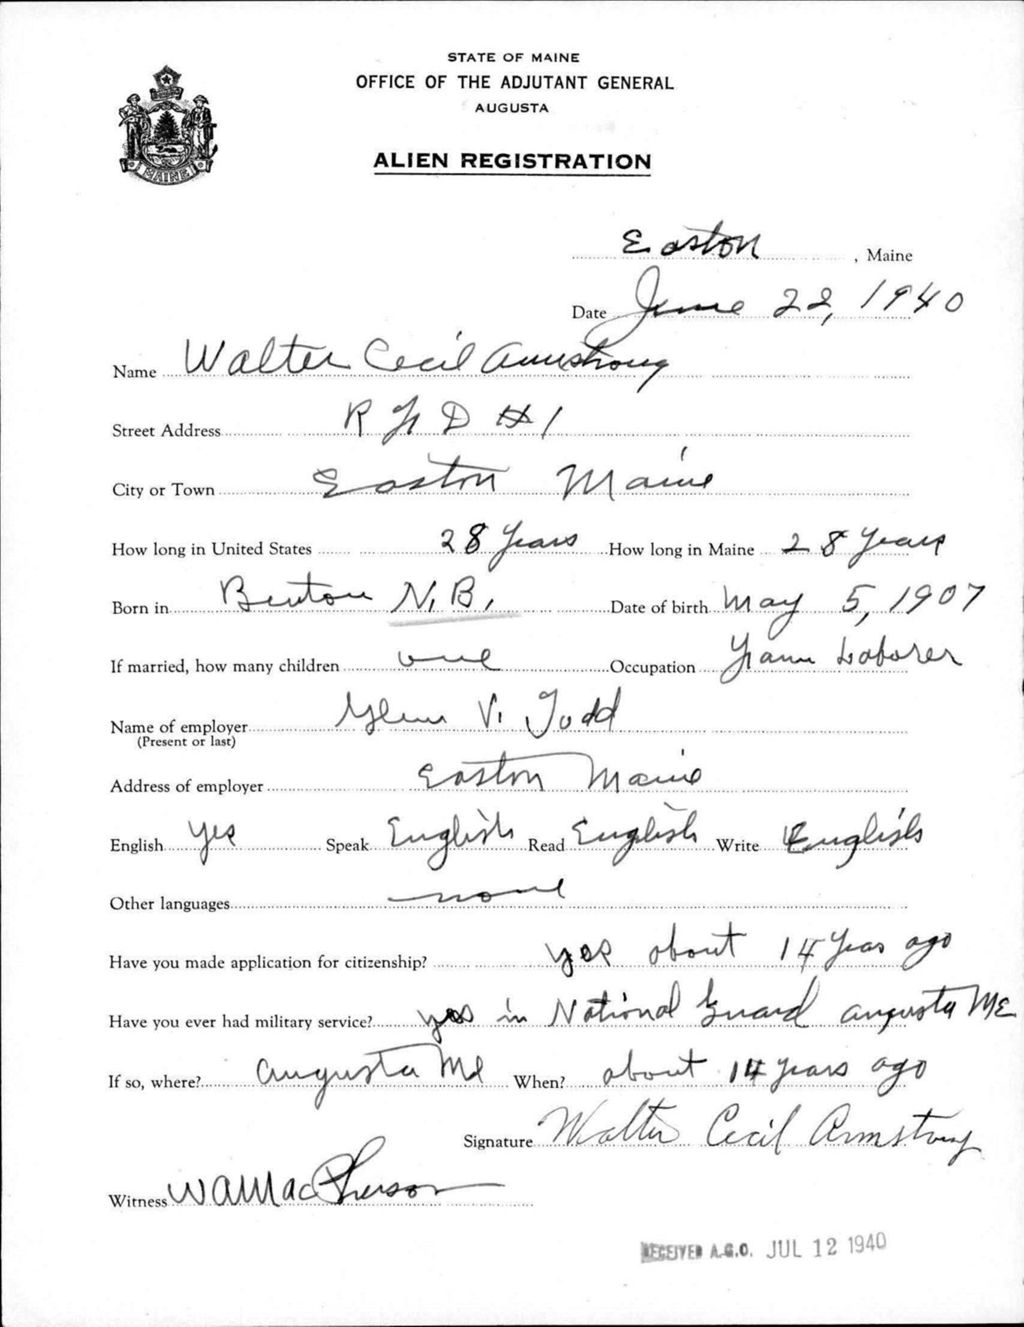 STATE OF MAINE
OFFICE OF THE ADJUTANT GENERAL
AUGUSTA
ALIEN REGISTRATION
MAINE
Easton, Maine
Date June 22, 1940
Name Walter Cecil Armstrong
Street Address R F D #1
City or Town Easton Maine
How long in United States 28 Years How long in Maine 28 Years
Born in Benton N.B. Date of birth May 5, 1907
If married, how many children one Occupation Farm Laborer
Name of employer Glenn V. Todd
(Present or last)
Address of employer Easton Maine
English Yes Speak English Read English Write English
Other languages none
Have you made application for citizenship? yes about 14 Years ago
Have you ever had military service? yes in National Guard Augusta ME
If so, where? Augusta Me When? about 14 years ago
Signature Walter Cecil Armstrong
Witness W A MacPherson
RECEIVED A.G.O. JUL 12 1940